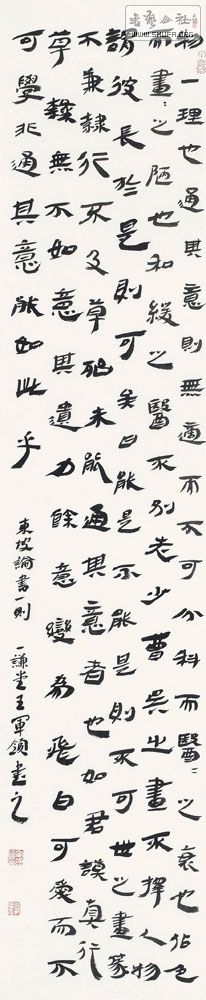 書藝公社
物一理也通其意則無適而不可分科而醫〻之衰也佔色
而畫〻之陋也和緩之醫不別老少曹吳之畫不擇人物
謂彼長於是則可矣曰能是不能是則不可世之書篆
不兼隸行不及草殆未能通其意者也如君謨真行
草隸無不如意其遺力餘意變為飛白可愛而不
可學非通其意能如此乎
東坡論書一則 一謙堂王軍領書之